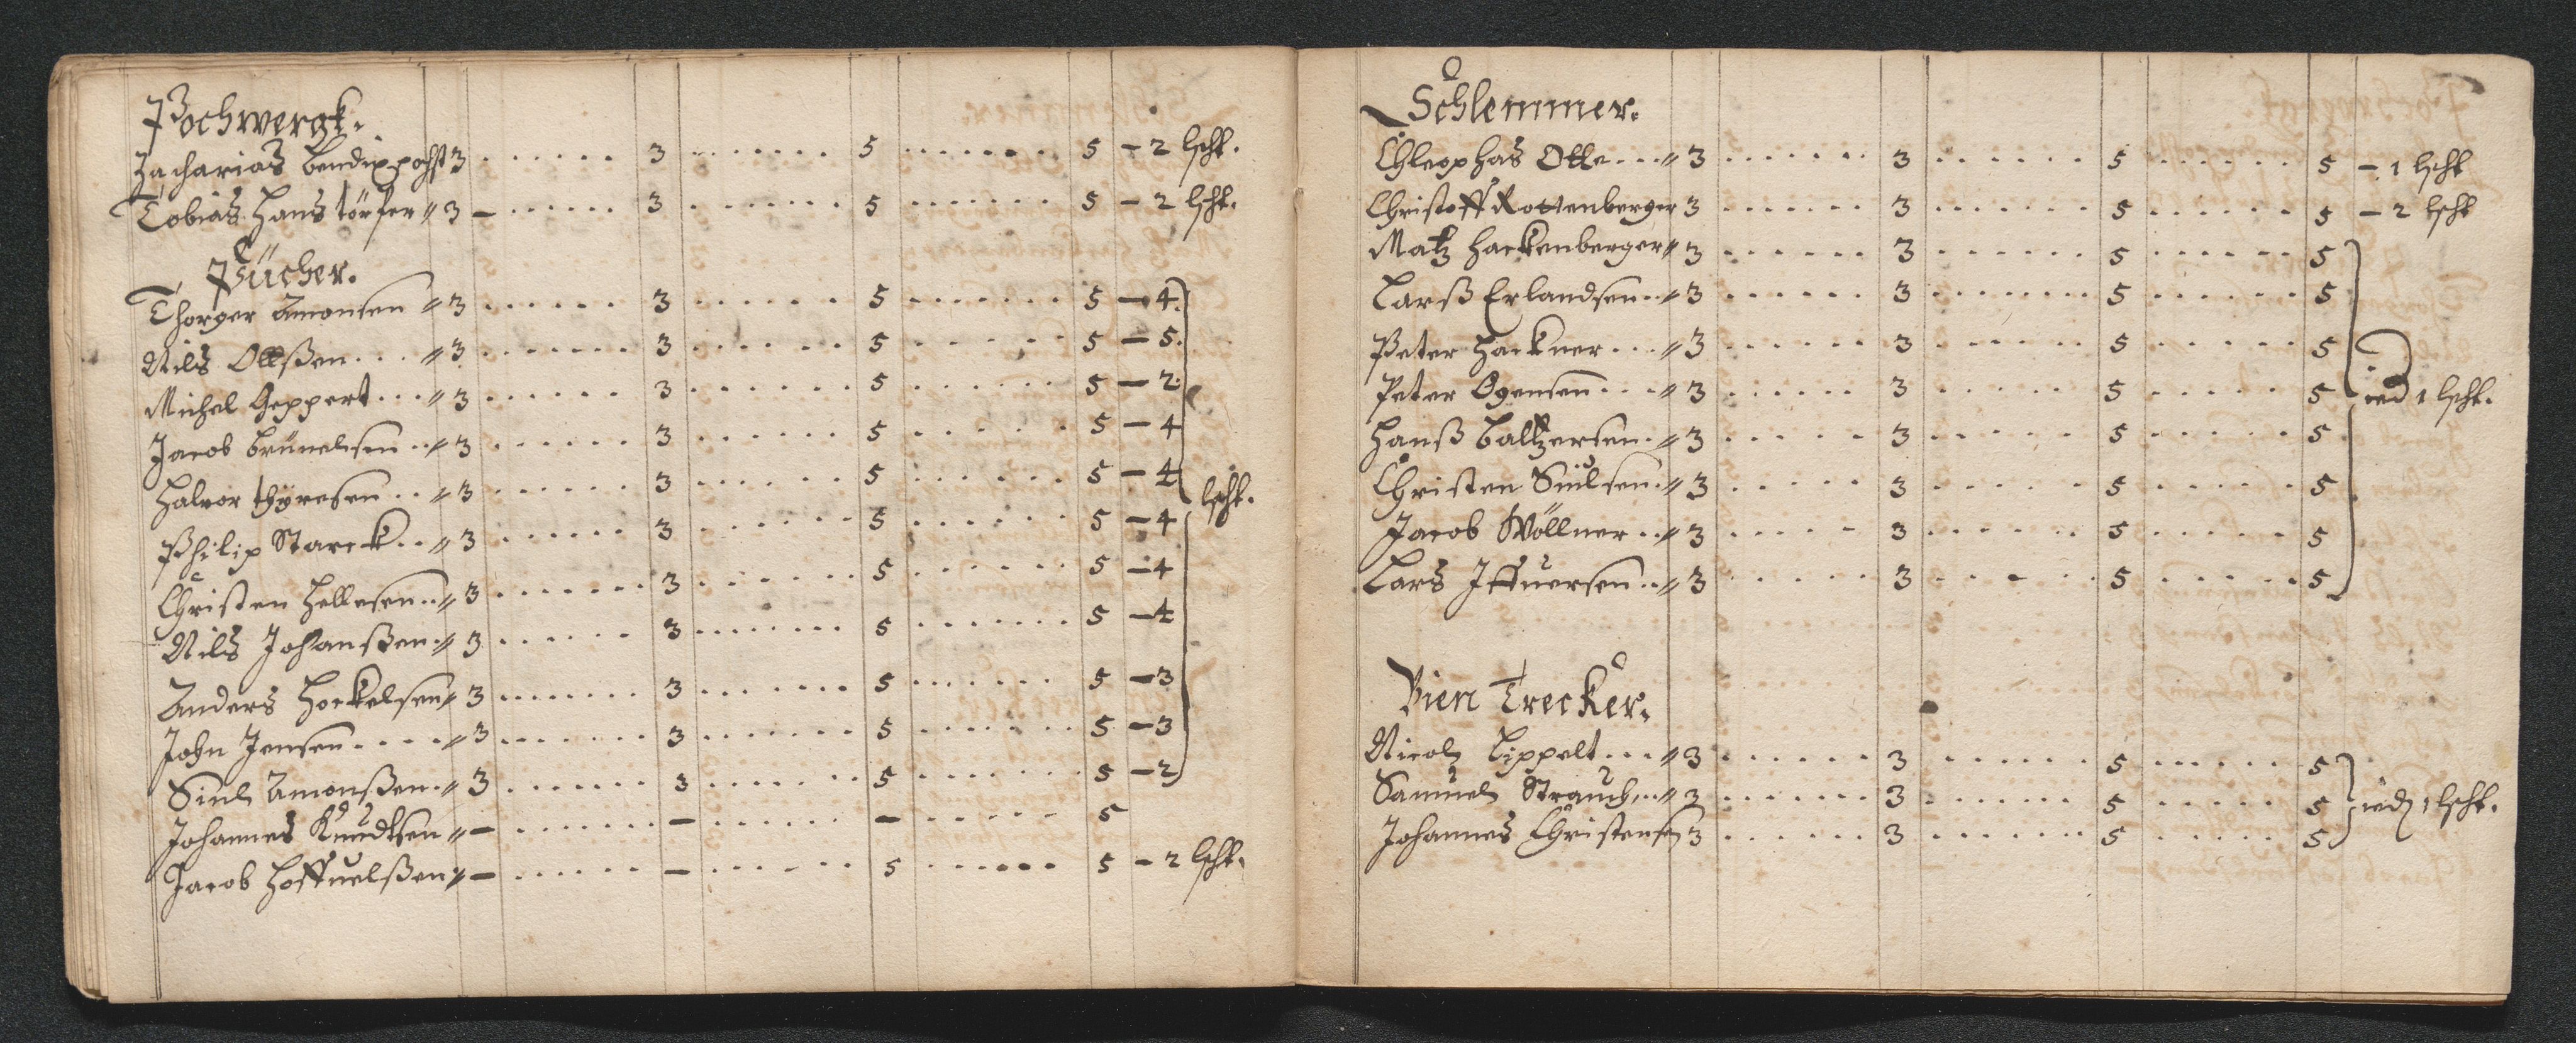 Pochwergk.
Zacharias Bendix pochst 3 . . . . . . 3 . . . . . . . 5 . . . . . . . 5 - 2 lscht.
Tobias Hans törfer〃 3 - . . . . . . 3 . . . . . . . 5 . . . . . . . 5 - 2 lscht.
Pücher.
Thorger Amonsen〃 3 . . . . . . 3 . . . . . . 5 . . . . . . . 5 - 4.
Nils Ollßen . . . 〃 3 . . . . . . . 3 . . . . . . 5 . . . . . . 5 - 5.
Michel Geppert . . . 〃 3 . . . . . . 3 . . . . . . 5 . . . . . . 5 - 2.
Jacob Brünelsen . . 〃 3 . . . . . . 3 . . . . . . 5 . . . . . 5 - 4
Halvor thyresen . . 〃 3 . . . . . . 3 . . . . . . 5 . . . . . . 5 - 4 lscht.
Philip Starck . . 〃 3 . . . . . . 3 . . . . . . 5 . . . . . . 5 - 4
Christen Hellesen . . 〃 3 . . . . . . . 3 . . . . . . 5 . . . . . . . 5 - 4
Nils Johanßen . 〃 3 . . . . . . 3 . . . . . . . . 5 . . . . . . . . 5 - 4
Anders Hockelsen〃 3 . . . . . . . 3 . . . . . . . 5 . . . . . . . 5 - 3
John Jensen . . . . 〃 3 . . . . . . . 3 . . . . . . . 5 . . . . . . . 5 - 3
Siul Amonßen . 〃 3 . . . . . . . 3 . . . . . . 5 . . . . . . . . 5 - 2
Johannes Knudtsen〃 - . . . . . . . - . . . . . . . - . . . . . . 5
Jacob Hoffuelßen〃 - . . . . . . - . . . . . . 5 . . . . . . 5 - 2 lscht.
Schlemmer.
Chleophas Otte . . . 〃 3 . . . . . . . 3 . . . . . . 5 . . . . . . 5 - 1 lscht
Christoff Rottenberger 3 . . . . . . 3 . . . . . . . 5 . . . . . . 5 - 2 lscht
Matz Hackenberger〃 3 . . . . . . 3 . . . . . . 5 . . . . . . 5
Larß Erlandsen . . 〃 3 . . . . . . 3 . . . . . . . . 5 . . . . . . 5
Peter Hackner . . . 〃 3 . . . . . . 3 . . . . . . 5 . . . . . 5
Peter Ogensen . . . 〃 3 . . . . . . 3 . . . . . 5 . . . . . 5 ied 1 lscht.
Hanß Baltzersen . 〃 3 . . . . . 3 . . . . . 5 . . . . . . 5
Christen Siulsen . 〃 3 . . . . . 3 . . . . . 5 . . . . . . 5
Jacob Wöllner . . 〃 3 . . . . . 3 . . . . . . 5 . . . . . . 5
Lars Iffuersen . . 〃 3 . . . . . 3 . . . . . 5 . . . . . . 5
Vien Trecker.
Nicol Lippelt . . . 〃 3 . . . . . . 3 . . . . . . 5 . . . . . . 5
Samuel Strauch . . 〃 3 . . . . . . . 3 . . . . . . . 5 . . . . . 5 ied 1 lscht.
Johannes Christensen 3 . . . . . . 3 . . . . . . . 5 . . . . . 5